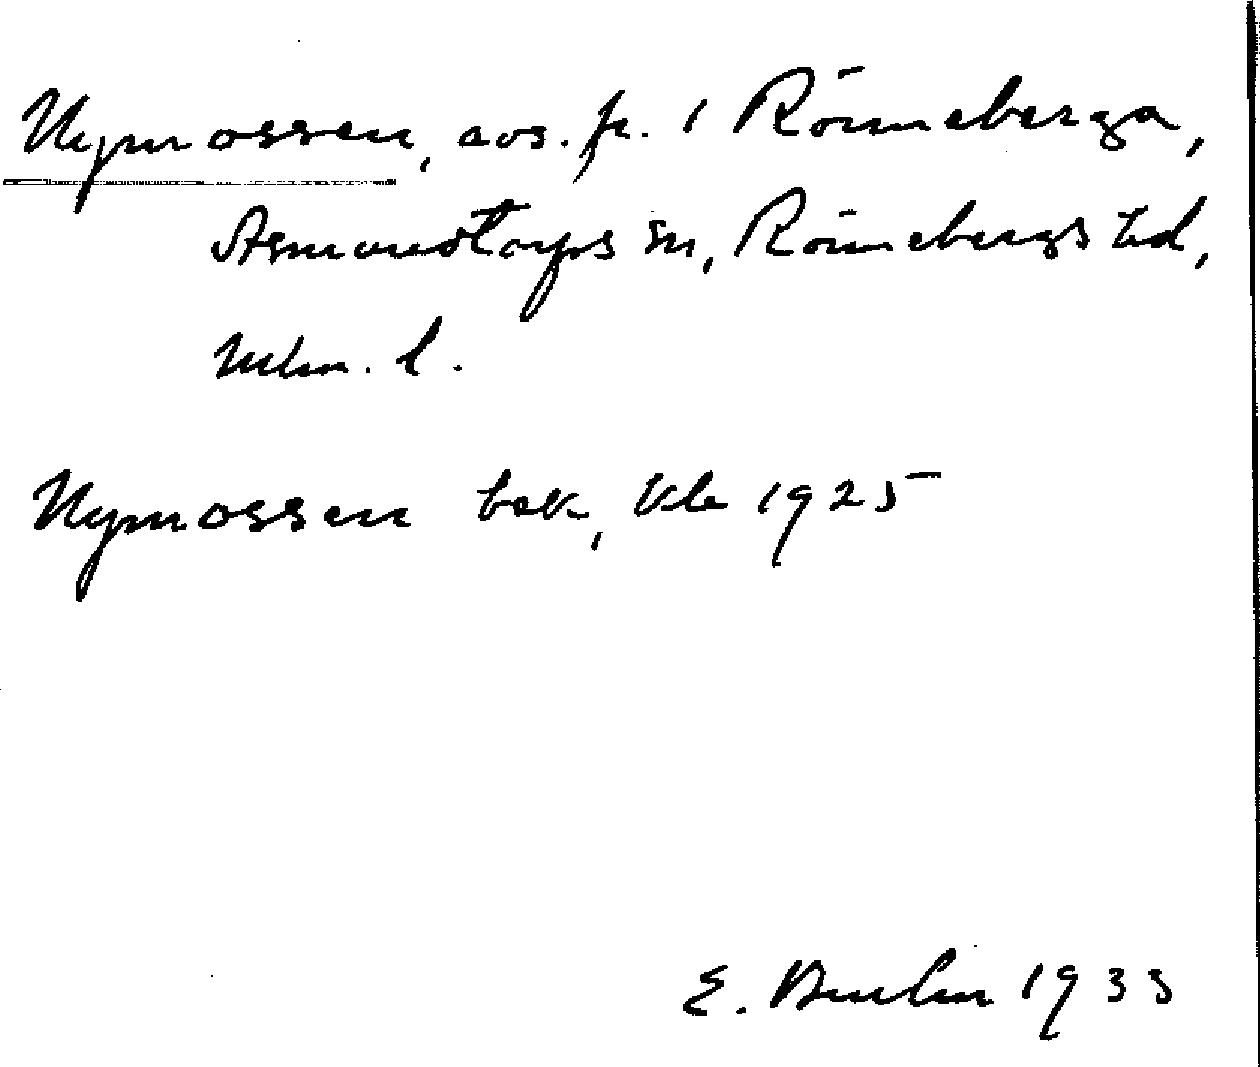 Nymossen, avs. fr. i Rönneberga,
Asmundtorps sn, Rönnebergs hd,
Mlm. l.
Nymossen bek, Kle 1925
E. 1933